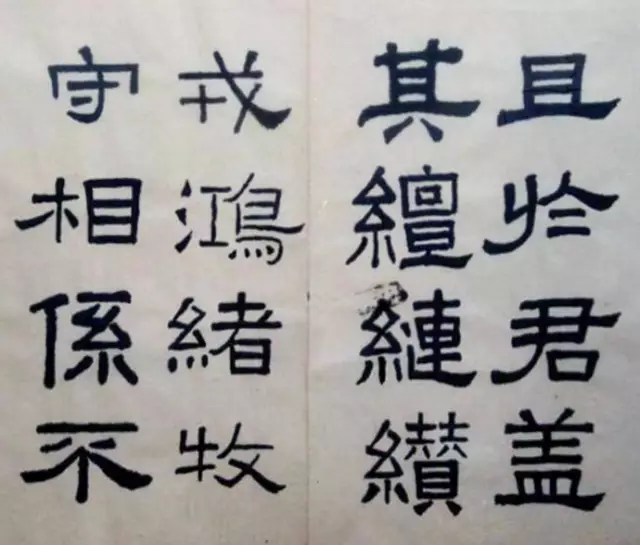 且於君盖
其繵縺纉
戎鴻緒牧
守相係不